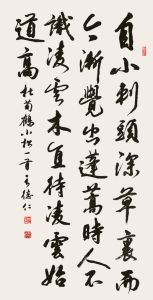 自小刺頭深草裏而
今漸覺出蓬蒿時人不
識凌雲木直待凌雲始
道高 杜荀鶴小松一首 德仁